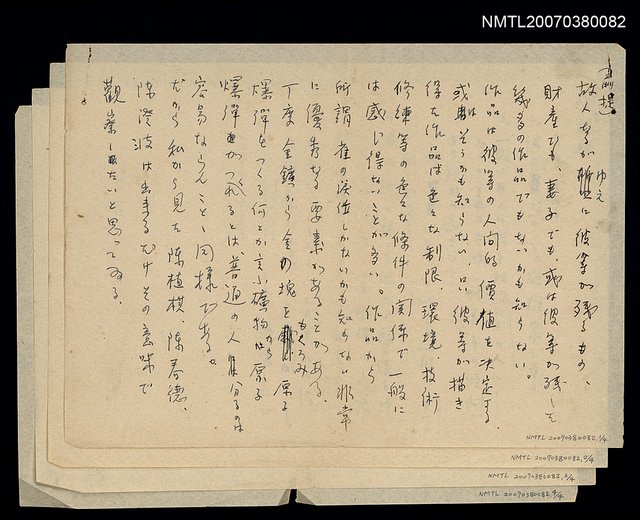 NMTL20070380082
前提
故人なるが故に彼等が残るもの、
ゆえ
財産でも、妻子でも、或は彼等が残した
幾多の作品でもないかも知らない。
作品は彼等の人間的價値を決定する
或はそうかも知らない、古い彼等が描き
得た作品は色々な制限、環境、技術
修練等の色々な條件の関係で一般に
は感じ得ないことが多い。作品から
所謂雀の涙位しかないかも知らない非常
に優秀なる要素があることがある。
丁度金鑛から金の塊を
もくろみ
原子
爆弾をつくる何とか言ふ礦物から原子
爆弾がつくれるとは普通の人分るのは
容易ならんことゝ同様である。
だから私から見た陳植棋、陳春德、
陳澄波は出来るだけその意味で
觀察したいと思ってゐる。
NMTL 20070380082,1/4
NMTL 20070380082,2/4
NMTL 20070380082,3/4
NMTL 20070380082,4/4